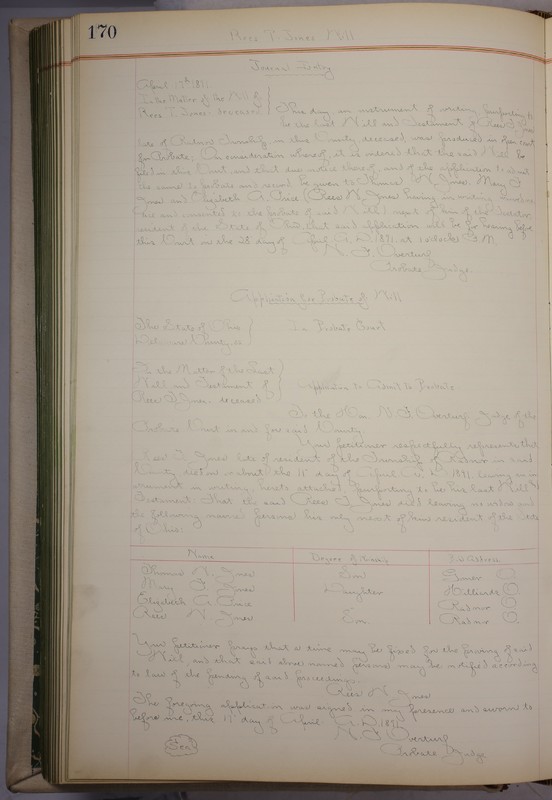 170
Rees T. Jones Will
April 17th 1891
In the Matter of the Will of
Rees T. Jones deceased
This day an instrument of writing purporting to
be the last Will and Testament of Rees T. Jones
late of Radnor Township in this County, deceased was produced in open court
for Probate. On consideration whereof, it is ordered that the said Will be
filed in this Court and that due notice thereof, and of the application to admit
the same to probate and record be given to Thomas N. Jones, Mary J.
Jones and Elizabeth A. Price (Rees N. Jones having in writing
this and consented to the probate of said Will)
resident of the State of Ohio, that said application will be for hearing before
this Court on the 23 day of April A.D. 1891 at o'clock P.M.
N. F. Overturf
Probate Judge
Application for Probate of Will
The State of Ohio
Delaware County ss
In Probate Court
In the Matter of the Last
Will and Testament of
Rees T. Jones deceased
Application to Admit to Probate
To the Hon. N. F. Overturf Judge of the
Probate Court in and for said County:
Your petitioner respectfully represents that
Rees T. Jones late of resident of the Township of Radnor in said
County died on or about the 11 day of April A.D. 1891, leaving an in-
strument in writing, hereto attached, purporting to be his last Will &
Testament. That the said Rees T. Jones died leaving no widow and
the following named persons his only next of kin resident of the State
of Ohio:
Name Degree of Kinship P.O. Address
Thomas N. Jones Son O.
Mary J. Jones Daughter Hilliards O.
Elizabeth A. Price Radnor O.
Rees N. Jones Son Radnor O.
Your petitioner prays that a time may be fixed for the proving of said
Will, and that said above named persons may be notified according
to law of the pendency of said proceedings.
Rees N. Jones
The foregoing application was signed in my presence and sworn to
before me, this 17 day of April A.D. 1891
N. F. Overturf
Probate Judge
Seal